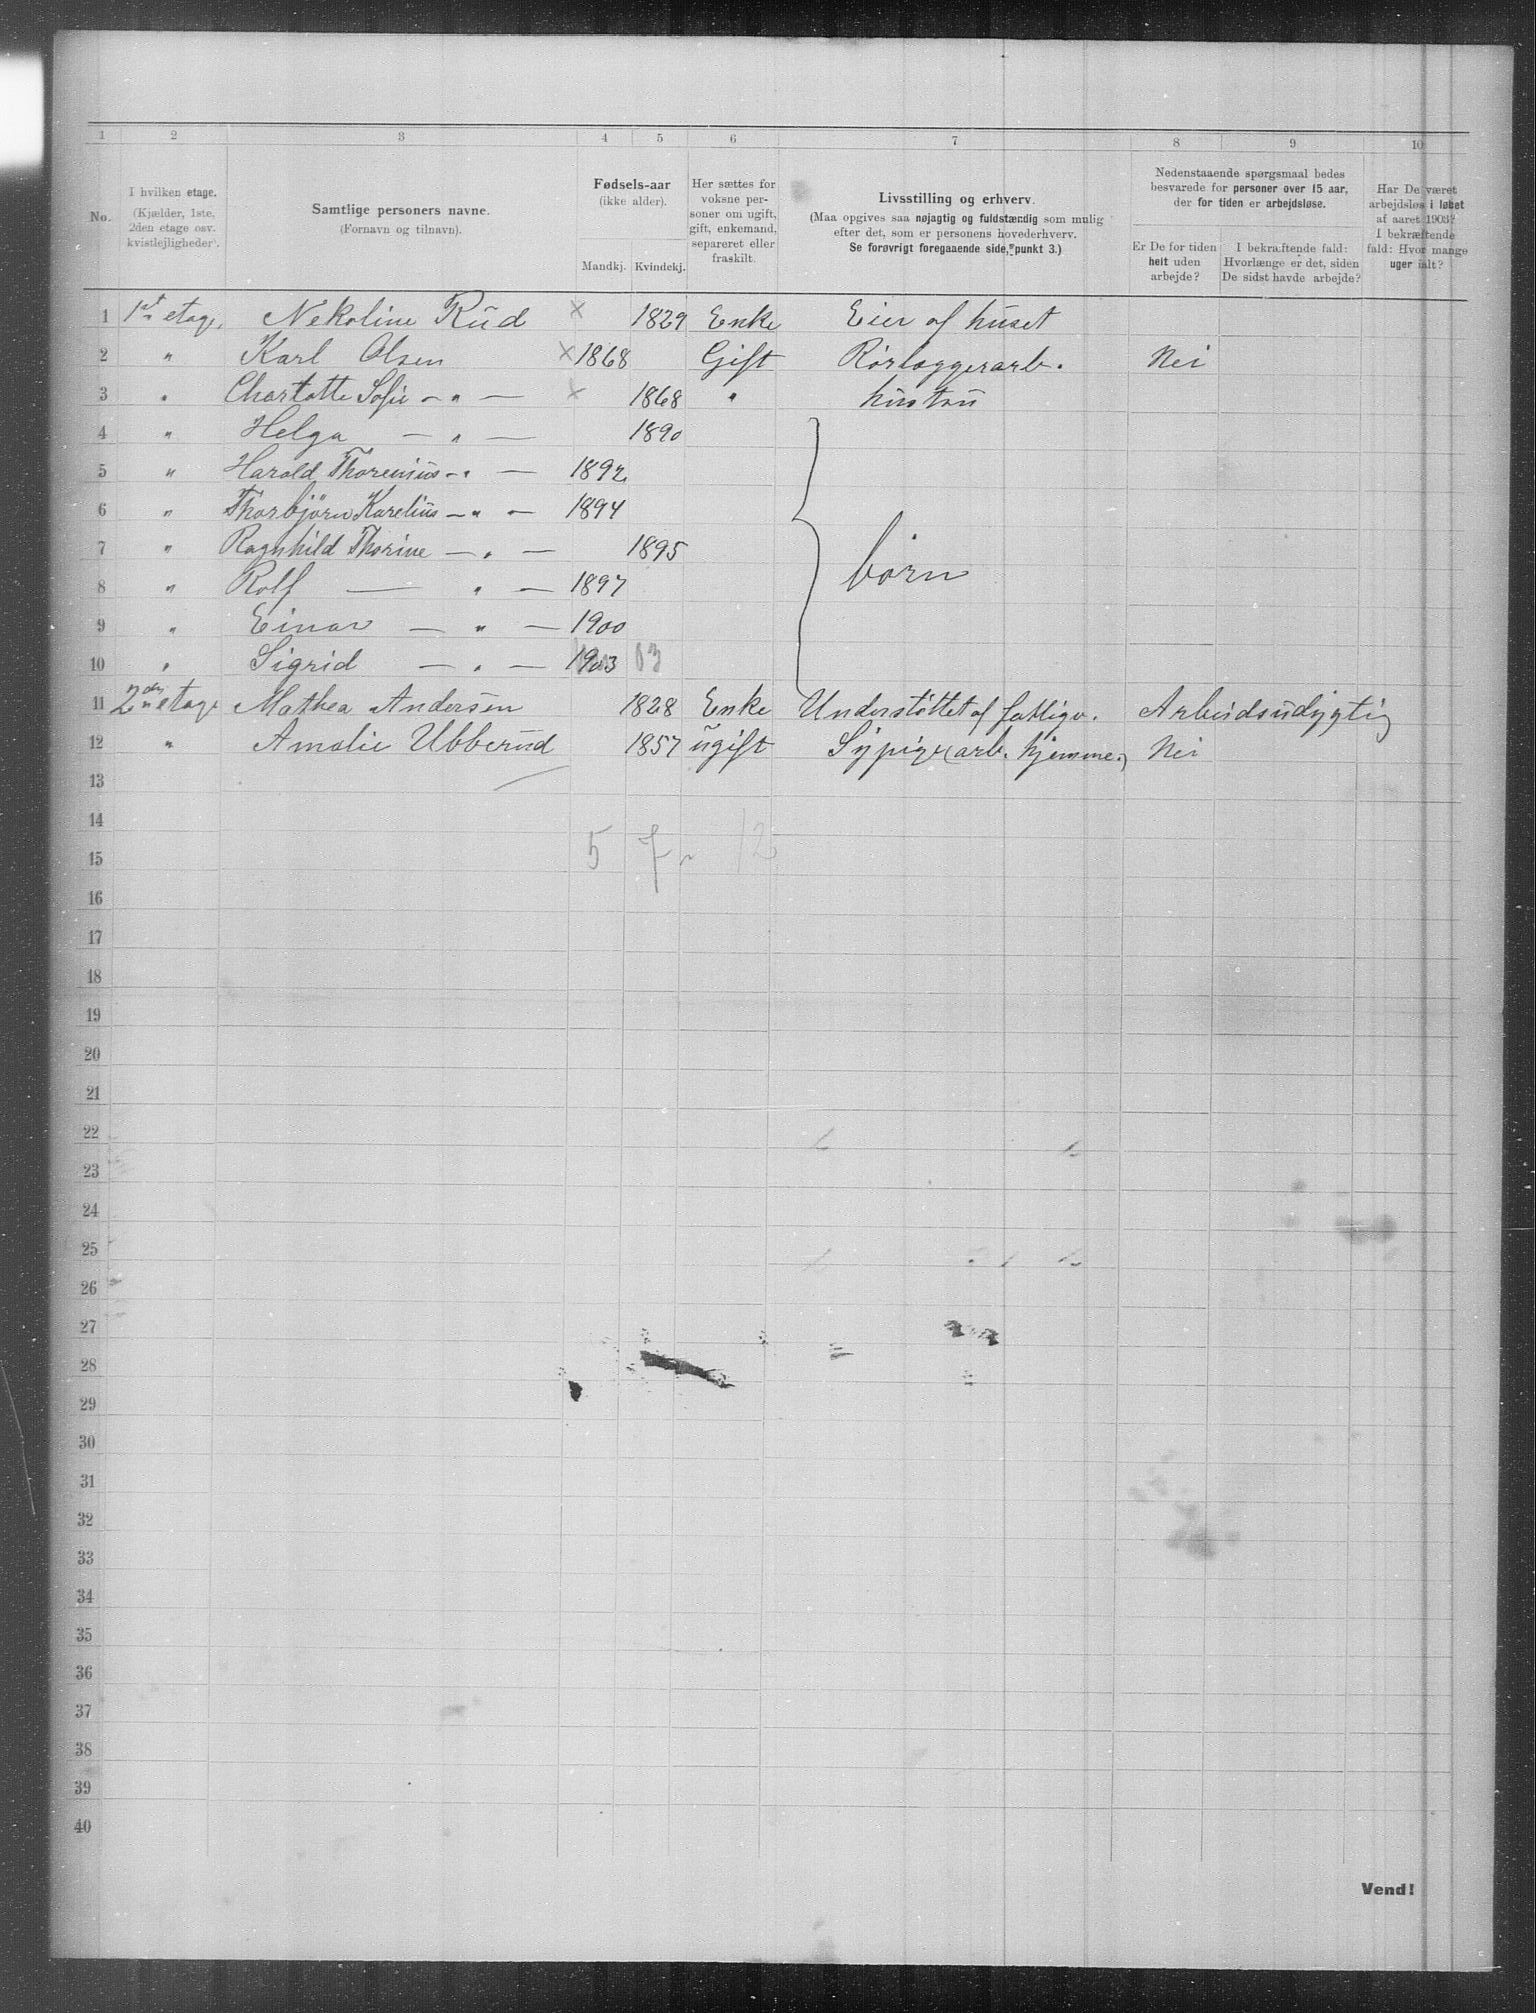 1 2 3 4 5 6 7 8 9 10
No.
I hvilken etage. (Kjælder, 1ste, 2den etage osv. kvistlejligheder).
Samtlige personers navne. (Fornavn og tilnavn).
Fødsels-aar (ikke alder).
Mandkj. Kvindekj.
Her sættes for voksne personer om ugift, gift, enkemand, separeret eller fraskilt.
Livsstilling og erhverv.
(Maa opgives saa nøjagtig og fuldstændig som mulig efter det, som er personens hovederhverv.
Se forøvrigt foregaaende side, punkt 3.)
Nedenstaaende spørgsmaal bedes besvarede for personer over 15 aar, der for tiden er arbejdsløse.
Er De for tiden helt uden arbejde?
I bekræftende fald: Hvorlænge er det, siden De sidst havde arbejde?
Har De været arbejdsløs i løbet af aaret 1903? I bekræftende fald: Hvor mange uger ialt?
1 1st etage. Nekoline Rud × 1829 Enke Eier af huset
2 " Karl Olsen × 1868 Gift Rørlæggerarb. Nei
3 " Charlotte Sofie — " — × 1868 " hustru
4 " Helga — " — 1890
5 " Harald Thorenius — " — 1892
6 " Thorbjörn Karelius — " — 1894
7 " Ragnhild Thorine — " — 1895
8 " Rolf — " — 1897 børn
9 " Einar — " — 1900
10 " Sigrid — " — 1903 03
11 2den etage Mathea Andersen 1828 Enke Understöttet af fattigv. Arbeidsudygtig
12 " Amalie Ubberud 1857 ugift Sypige (arb. hjemme.) Nei
13
14
15 5 7 12
16
17
18
19
20
21
22
23
24
25
26
27
28
29
30
31
32
33
34
35
36
37
38
39
40
Vend!